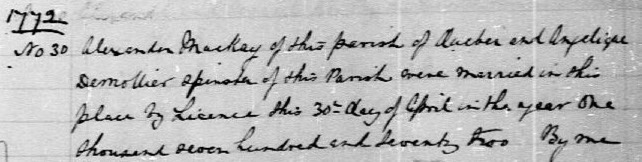 1772
No 30 Alexander Mackay of this parish of Quebec and Angelique
Demollier spinster of this Parish were married in this
place by Licence this 30th Day of April in the year One
thousand seven hundred and seventy two By me